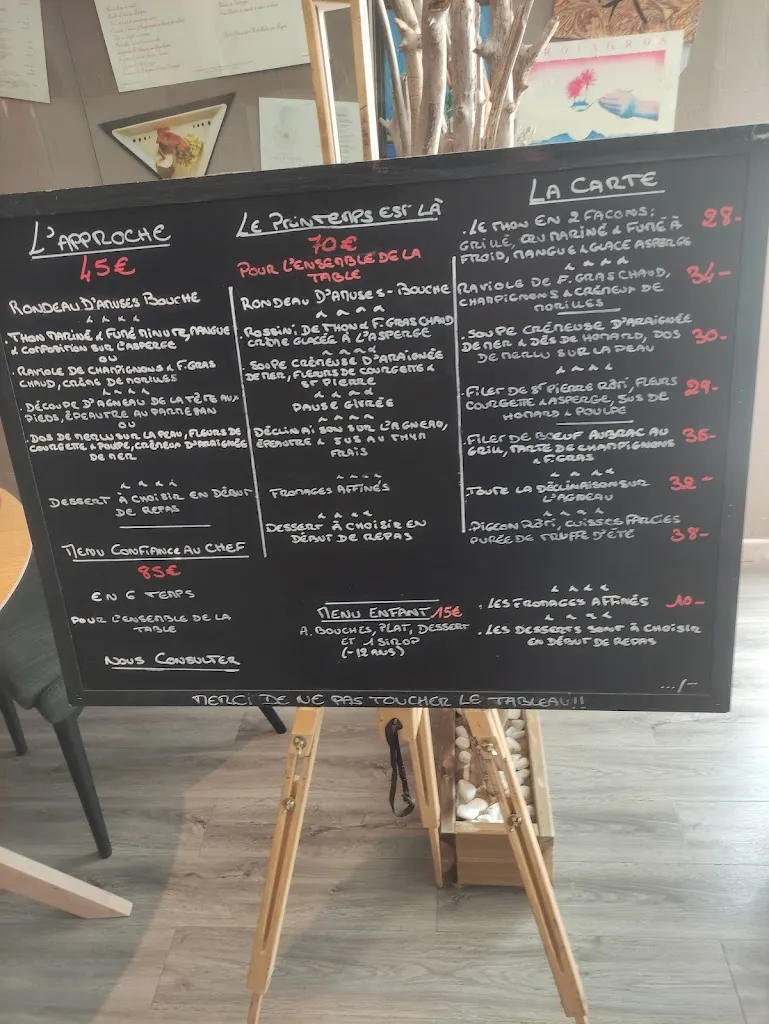 L'APPROCHE
45€
RONDEAU D'AMUSES BOUCHE
. THON MARINÉ & FUMÉ MINUTE, MANGUE
& COMPOSITION SUR L'ASPERGE
OU
. RAVIOLE DE CHAMPIGNONS & F. GRAS
CHAUD, CRÈME DE MORILLES
. DÉCOUPE D'AGNEAU DE LA TÊTE AUX
PIEDS, ÉPEAUTRE AU PARMESAN
OU
. DOS DE MERLU SUR LA PEAU, FLEURS DE
COURGETTE & POULPE, CRÉMEUX D'ARAIGNÉE
DE MER
DESSERT À CHOISIR EN DÉBUT
DE REPAS
MENU CONFIANCE AU CHEF
85€
EN 6 TEMPS
POUR L'ENSEMBLE DE LA
TABLE
NOUS CONSULTER
LE PRINTEMPS EST LÀ
70€
POUR L'ENSEMBLE DE LA
TABLE
RONDEAU D'AMUSES-BOUCHE
ROSSINI DE THON & F. GRAS CHAUD
CRÈME GLACÉE À L'ASPERGE
SOUPE CRÉMEUSE D'ARAIGNÉE
DE MER, FLEURS DE COURGETTE &
ST PIERRE
PAUSE GIVRÉE
DÉCLINAISON SUR L'AGNEAU,
ÉPEAUTRE & JUS AU THYM
FRAIS
FROMAGES AFFINÉS
DESSERT À CHOISIR EN
DÉBUT DE REPAS
MENU ENFANT 15€
A. BOUCHES, PLAT, DESSERT
ET 1 SIROP
(-12 ANS)
LA CARTE
. LE THON EN 2 FACONS: 28-
GRILLÉ, CRU MARINÉ & FUMÉ À
FROID, MANGUE & GLACE ASPERGE
RAVIOLE DE F. GRAS CHAUD, 34-
CHAMPIGNONS & CRÉMEUX DE
MORILLES
. SOUPE CRÉMEUSE D'ARAIGNÉE 30-
DE MER & DÉS DE HOMARD, DOS
DE MERLU SUR LA PEAU
. FILET DE ST PIERRE RÔTI, FLEURS 29-
COURGETTE & ASPERGE, JUS DE
HOMARD & POULPE
. FILET DE BŒUF AUBRAC AU 35-
GRILL, TARTE DE CHAMPIGNONS
& F. GRAS
. TOUTE LA DÉCLINAISON SUR 32-
L'AGNEAU
. PIGEON RÔTI, CUISSES FARCIES 38-
PURÉE DE TRUFFE D'ÉTÉ
. LES FROMAGES AFFINÉS 10-
. LES DESSERTS SONT À CHOISIR
EN DÉBUT DE REPAS
.../-
MERCI DE NE PAS TOUCHER LE TABLEAU!!